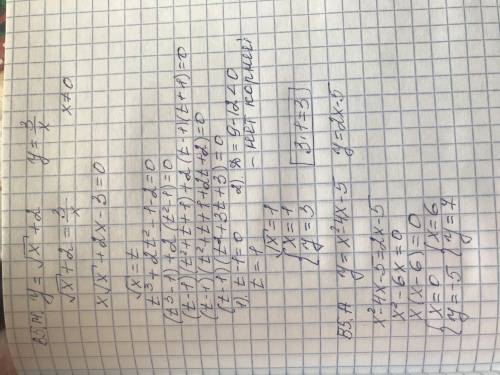 В5.М. y=√x+2    y=3/x
√x+2=3/x    x≠0
x√x+2x-3=0
√x=t
t³+2t²-1-2=0
(t³-1)+2(t²-1)=0
(t-1)(t²+t+1)+2(t-1)(t+1)=0
(t-1)(t²+t+1+2t+2)=0
(t-1)(t²+3t+3)=0
1). t-1=0    2). D=9-12<0
t=1    - нет корней
√x=1
{x=1
{y=3    3·1=3
В5.А    y=x²-4x-5    y=2x-5
x²-4x-5=2x-5
x²-6x=0
x(x-6)=0
{x=0    {x=6
{y=-5    {y=7